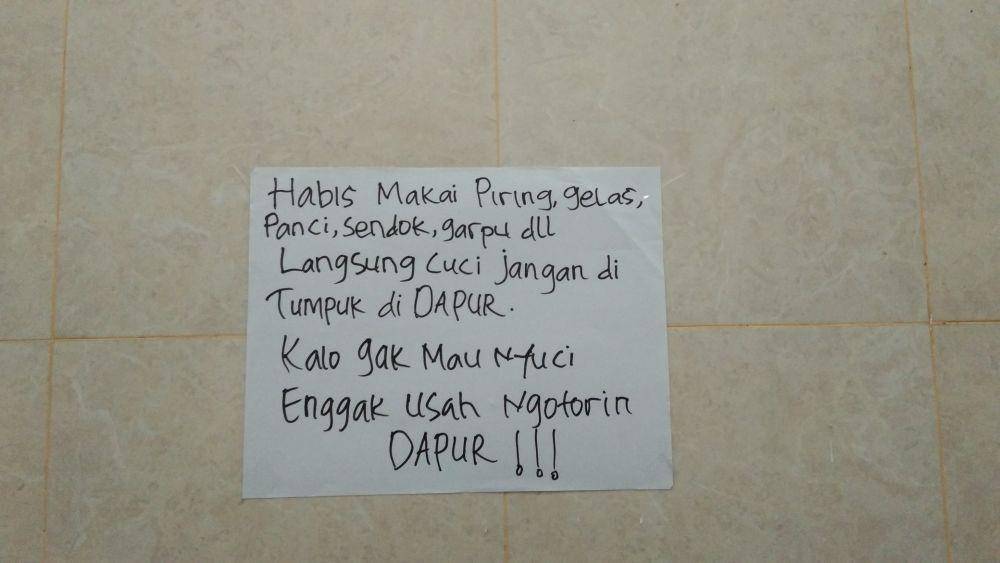 Habis Makai Piring, gelas,
Panci, sendok, garpu dll
Langsung cuci jangan di
Tumpuk di DAPUR.
Kalo gak Mau Nyuci
Enggak Usah Ngotorin
DAPUR !!!